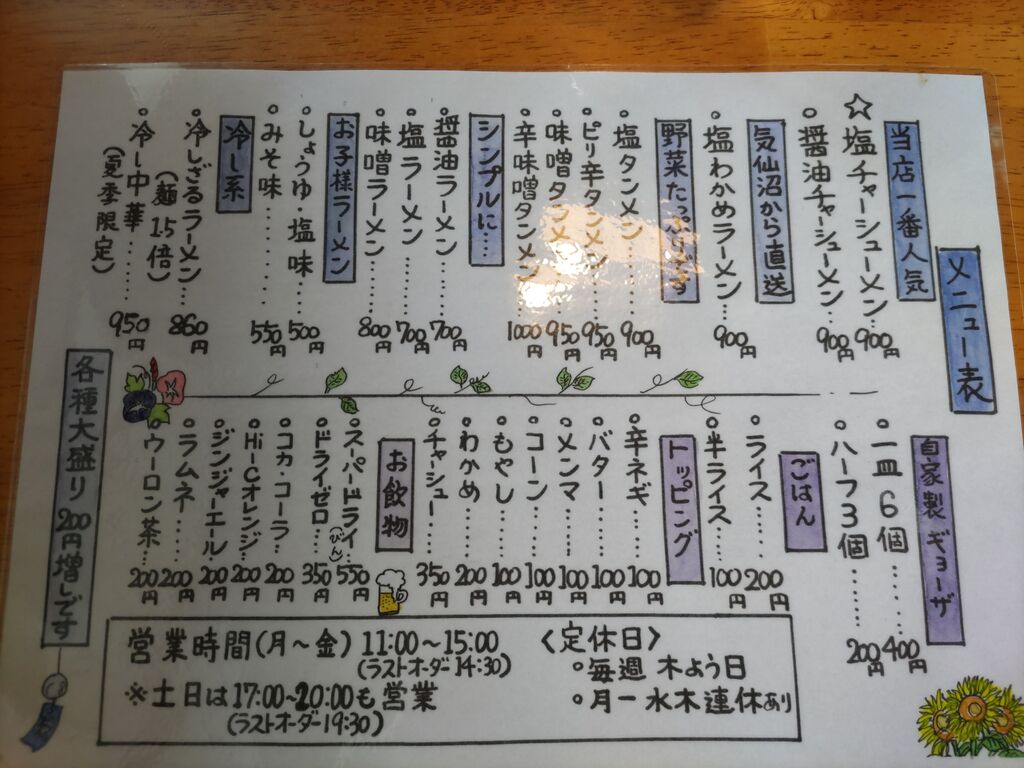 メニュー表
当店一番人気
☆塩チャーシューメン…900円
・醤油チャーシューメン…900円
気仙沼から直送
・塩わかめラーメン……900円
野菜たっぷりです
・塩タンメン………900円
・ピリ辛タンメン……950円
・味噌タンメン……950円
・辛味噌タンメン……1000円
シンプルに…
・醤油ラーメン……700円
・塩ラーメン………700円
・味噌ラーメン……800円
お子様ラーメン
・しょうゆ・塩味……500円
・みそ味…………550円
冷し系
・冷しざるラーメン…860円
(麺1.5倍)
・冷し中華………950円
(夏季限定)
自家製ギョーザ
・一皿6個……400円
・ハーフ3個……200円
ごはん
・ライス………200円
・半ライス……100円
トッピング
・辛ネギ………100円
・バター………100円
・メンマ………100円
・コーン………100円
・もやし………100円
・わかめ………200円
・チャーシュー……350円
お飲物
・スーパードライ(びん)…550円
・ドライゼロ……350円
・コカ・コーラ……200円
・Hi-Cオレンジ…200円
・ジンジャーエール…200円
・ラムネ………200円
・ウーロン茶……200円
各種大盛り 200円増しです
営業時間(月〜金) 11:00〜15:00
(ラストオーダー14:30)
※土日は17:00〜20:00も営業
(ラストオーダー19:30)
〈定休日〉
・毎週 木よう日
・月一 水木連休あり